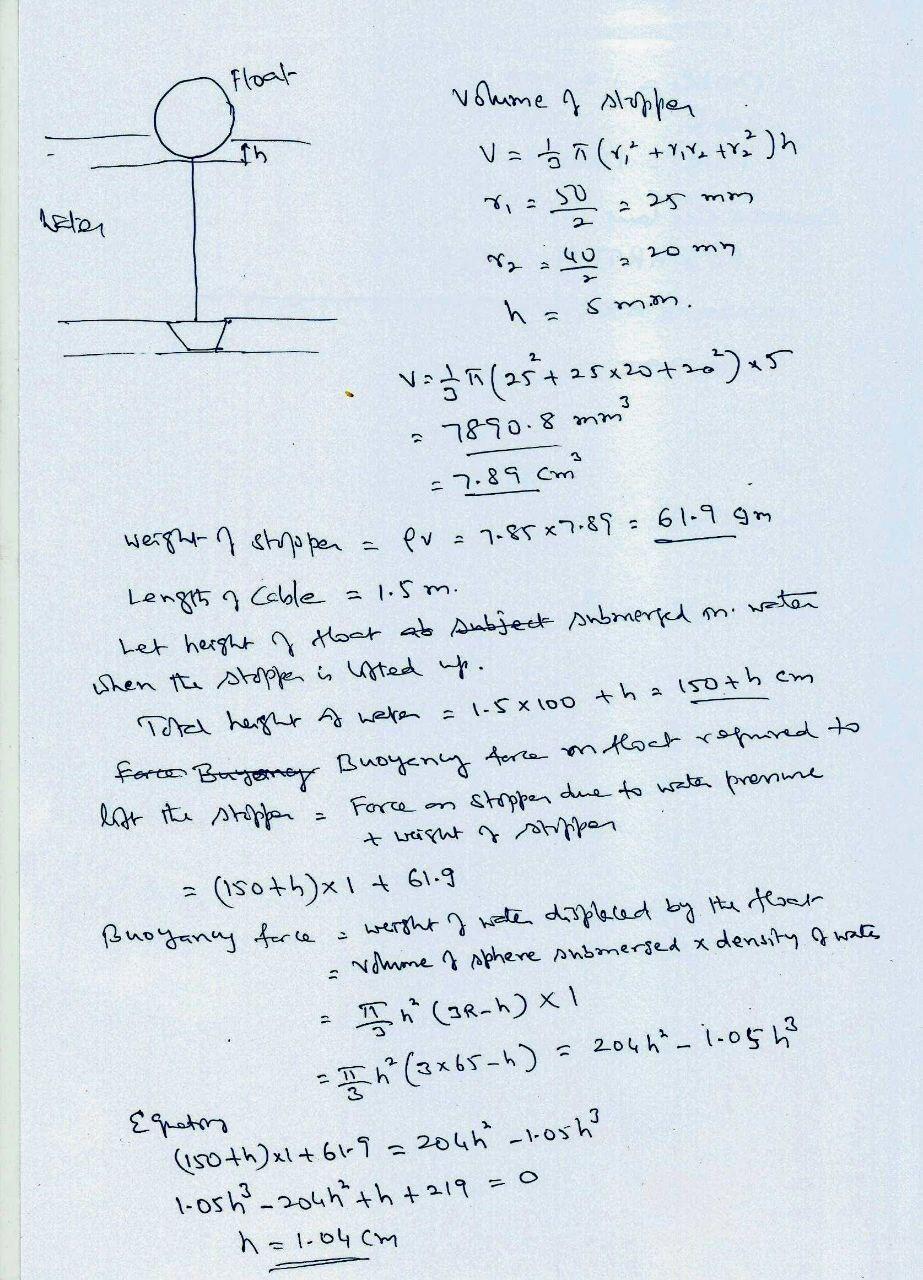 Float
h
Water
Volume of stopper
V = 1/3 π (r₁² + r₁r₂ + r₂²) h
r₁ = 50/2 = 25 mm
r₂ = 40/2 = 20 mm
h = 5 mm.
V = 1/3 π (25² + 25 x 20 + 20²) x 5
= 7890.8 mm³
= 7.89 cm³
weight of stopper = ρv = 7.85 x 7.89 = 61.9 gm
Length of Cable = 1.5 m.
Let height of float ab subject submerged in water
when the stopper is lifted up.
Total height of water = 1.5 x 100 + h = 150 + h cm
Force Buoyancy Buoyancy force on float required to
lift the stopper = Force on stopper due to water pressure
+ weight of stopper
= (150+h) x 1 + 61.9
Buoyancy force = weight of water displaced by the float
= volume of sphere submerged x density of water
= π/3 h² (3R-h) x 1
= π/3 h² (3x65-h) = 204h² - 1.05h³
Equating
(150+h)x1 + 61.9 = 204h² - 1.05h³
1.05h³ - 204h² + h + 219 = 0
h = 1.04 cm